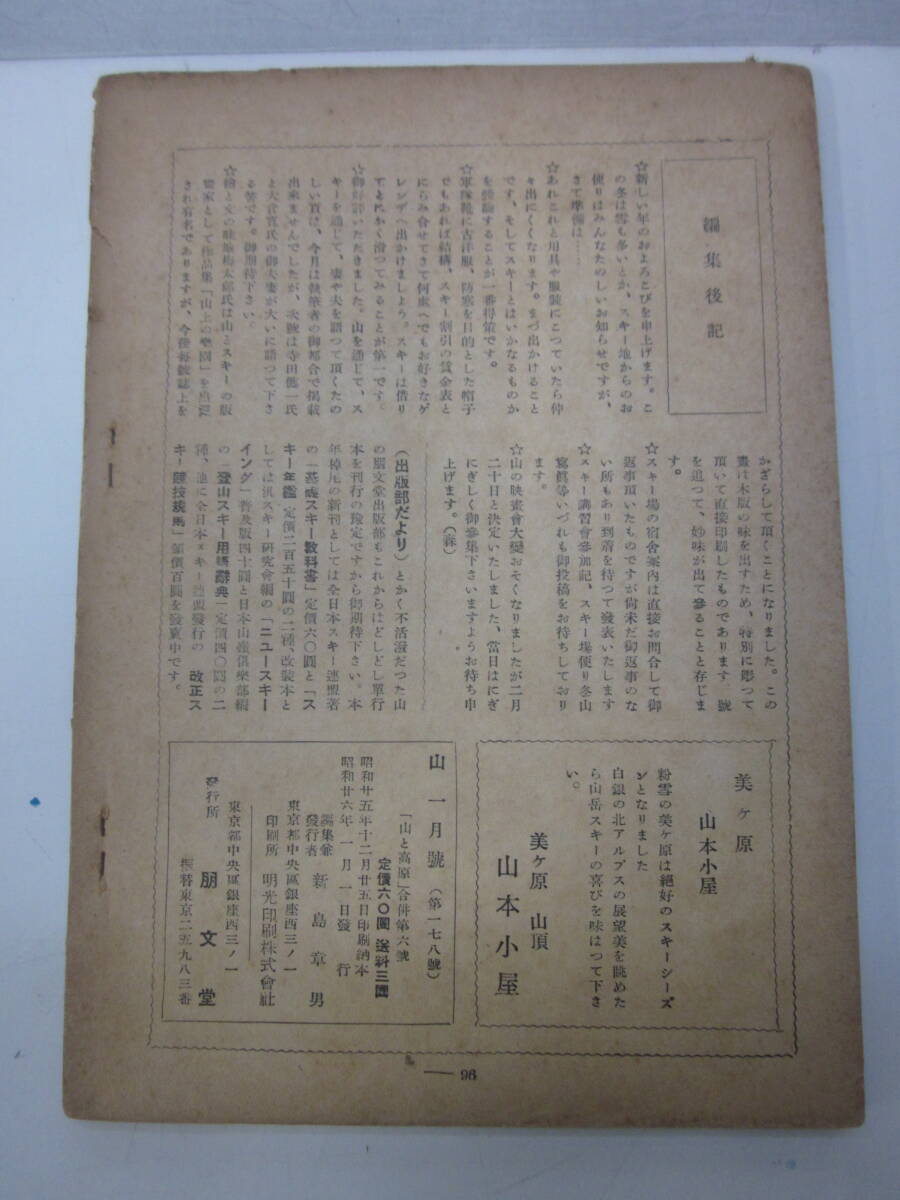 編集後記
☆新しい年のおよろこびを申上げます。こ
の冬は雪も多いとか、スキー地からのお
便りはみんなたのしいお知らせですが、
さて準備は……
☆あれこれと用具や服装にこつていたら仲
々出にくくなります。まづ出かけること
です、そしてスキーとはいかなるものか
を体験することが一番得策です。
☆軍隊靴に古洋服、防寒を目的とした帽子
でもあれば結構、スキー割引の賃金表と
にらみ合せてさて何處へでもお好きなゲ
レンデへ出かけましよう。スキーは借り
てとにかく滑つてみることが第一です。
☆御好評いただきました。山を通じて、ス
キーを通じて、妻や夫を語つて頂くたの
しい頁は、今月は執筆者の御都合で掲載
出来ませんでしたが、次號は寺田
と大倉寛氏の御夫妻が大いに語つて下さ
る筈です。御期待下さい。
☆繪と文の畦地梅太郎氏は山とスキーの版
畫家として作品集「山上の樂園」を出版
され有名でありますが、今後毎號誌上を
かざらして頂くことになりました。この
畫は木版の味を出すため、特別に彫つて
頂いて直接印刷したものであります 號
を追つて、妙味が出て參ることと存じま
す。
☆スキー場の宿舎案内は直接お問合して御
返事頂いたものですが尚未だ御返事のな
い所もあり到着を待つて發表いたします
☆スキー講習會參加記、スキー場便り冬山
寫眞等いづれも御投稿をお待ちしており
ます。
☆山の映畫會大變おそくなりましたが二月
二十日と決定いたしました、當日はにぎ
にぎしく御參集下さいますようお待ち申
上げます。(森)
(出版部だより)とかく不活潑だつた山
の朋文堂出版部もこれからはどしどし單行
本を刊行の豫定ですから御期待下さい。本
年掉尾の新刊としては全日本スキー連盟著
の「基礎スキー教科書」定價六〇圓と「ス
キー年鑑」定價二百五十圓の二種、改裝本と
しては汎スキー研究會編の「ニユースキー
イング」普及版四十圓と日本山嶽倶樂部編
の「登山スキー用語辭典」定價四〇圓の二
種、他に全日本スキー連盟發行の 改正ス
キー競技規則」領價百圓を發賣中です。
美ヶ原
山本小屋
粉雪の美ヶ原は絶好のスキーシーズ
ンとなりました
白銀の北アルプスの展望美を眺めた
ら山岳スキーの喜びを味はつて下さ
い。
美ヶ原 山頂
山本小屋
山 一月號(第一七八號)
「山と高原」合併第六號
定價六〇圓 送料三圓
昭和廿五年十二月廿五日印刷納本
昭和廿六年一月一日發行
編集兼
發行者 新島章男
東京都中央區銀座西三ノ一
印刷所 明光印刷株式會社
東京都中央區銀座西三ノ一
發行所 朋文堂
振替東京二五九八三番
— 96